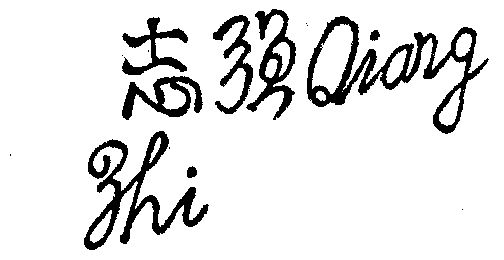 志强Qiang
Zhi